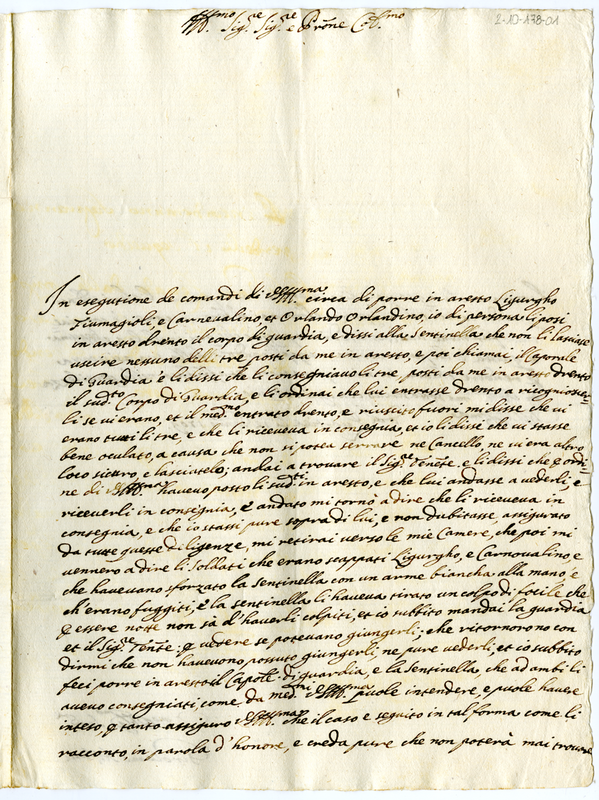 2-10-178-01
Ill.mo Sig.re Sig.re e Prõne Col.mo
In esegutione de comandi di VSIll.ma circa di porre in aresto Ligurgho
Fiumagioli, e Carnevalino, et Orlando Orlandino, io di persona li posi
in aresto drento il corpo di guardia, e dissi alla Sentinella che non li lasciasse
uscire nessuno delli tre posti da me in aresto e poi chiamai il Caporale
di Guardia e li dissi che li consegniavo li tre posti da me in aresto drento
il sud.to Corpo di Guardia, e li ordinai che lui entrasse drento a ricogniosere
li se vi erano, et il med.mo entrato drento, e riuscito fuori mi disse che vi
erano tutti li tre, e che li riceveva in consegnia, et io li dissi che vi stasse
bene oculato, a causa che non si potea serrare ne Cancello ne vi era altro
loco sicuro, e lasciatelo, andai a trovare il Sig.re Tenẽte e li dissi che p ordi-
ne di VSIll.ma havevo posto li sud.ti in aresto, e che lui andasse a vederli, e
riceverli in consegnia, è andato mi tornò a dire che li riceveva in
consegnia, e che io stassi pure sopra di lui, e non dubitasse, assigurato
da tutte queste diligenze, mi retirai verso le mie Camere, che poi mi
vennero a dire li Soldati che erano scappati Ligurgho, e Carnovalino, e
che havevano sforzato la Sentinella con un arme biancha alla mano e
ch'erano fuggiti, e la sentinella li haveva tirato un colpo di focile che
p essere notte non sà d'haverli colpiti, et io subbito mandai la guardia
et il Sig.re Tenẽte p vedere se potevano giungerli, che ritornorono con
dirmi che non havevono possuto giungerli, ne pure vederli, et io subbito
feci porre in aresto il Capole di guardia, e la Sentinella che ad ambi li
avevo consegniati, come da med.mi VSIll.ma puole intendere, e puole havere
inteso, e tanto assiguro VSIll.ma che il caso e seguito in tal forma come li
racconto, in parola d'honore, e creda pure che non poterà mai trovare